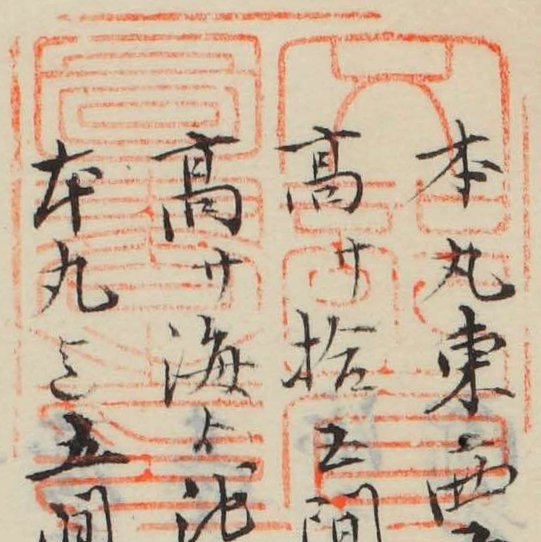 本丸東西
高サ拾五間
高サ海ゟ
本丸迄五間